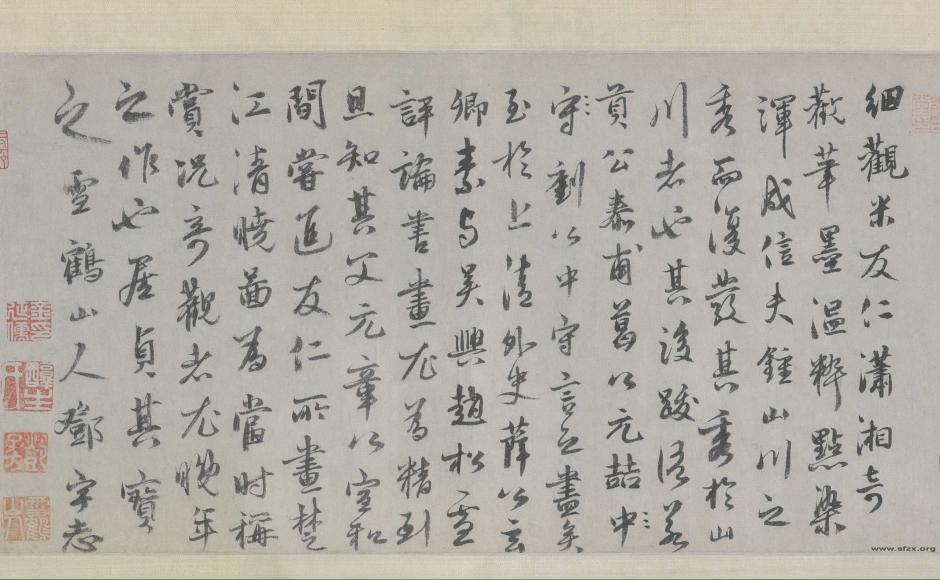 細觀米友仁瀟湘奇
觀筆墨温粹點染
渾成信夫鍾山川之
秀而後發其秀於山
川者也其後跋語若
貢公泰甫葛公元喆中
守劉公中守言之盡矣
至於上清外史薛公玄
卿素与吴興趙松雪
評論書畫尤為精到
且知其父元章公宣和
間嘗進友仁所畫楚
江清曉圖為當時稱
賞況奇觀者尤晚年
之作也居貞其寶
之雪鶴山人鄧宇志
www.sfzx.org